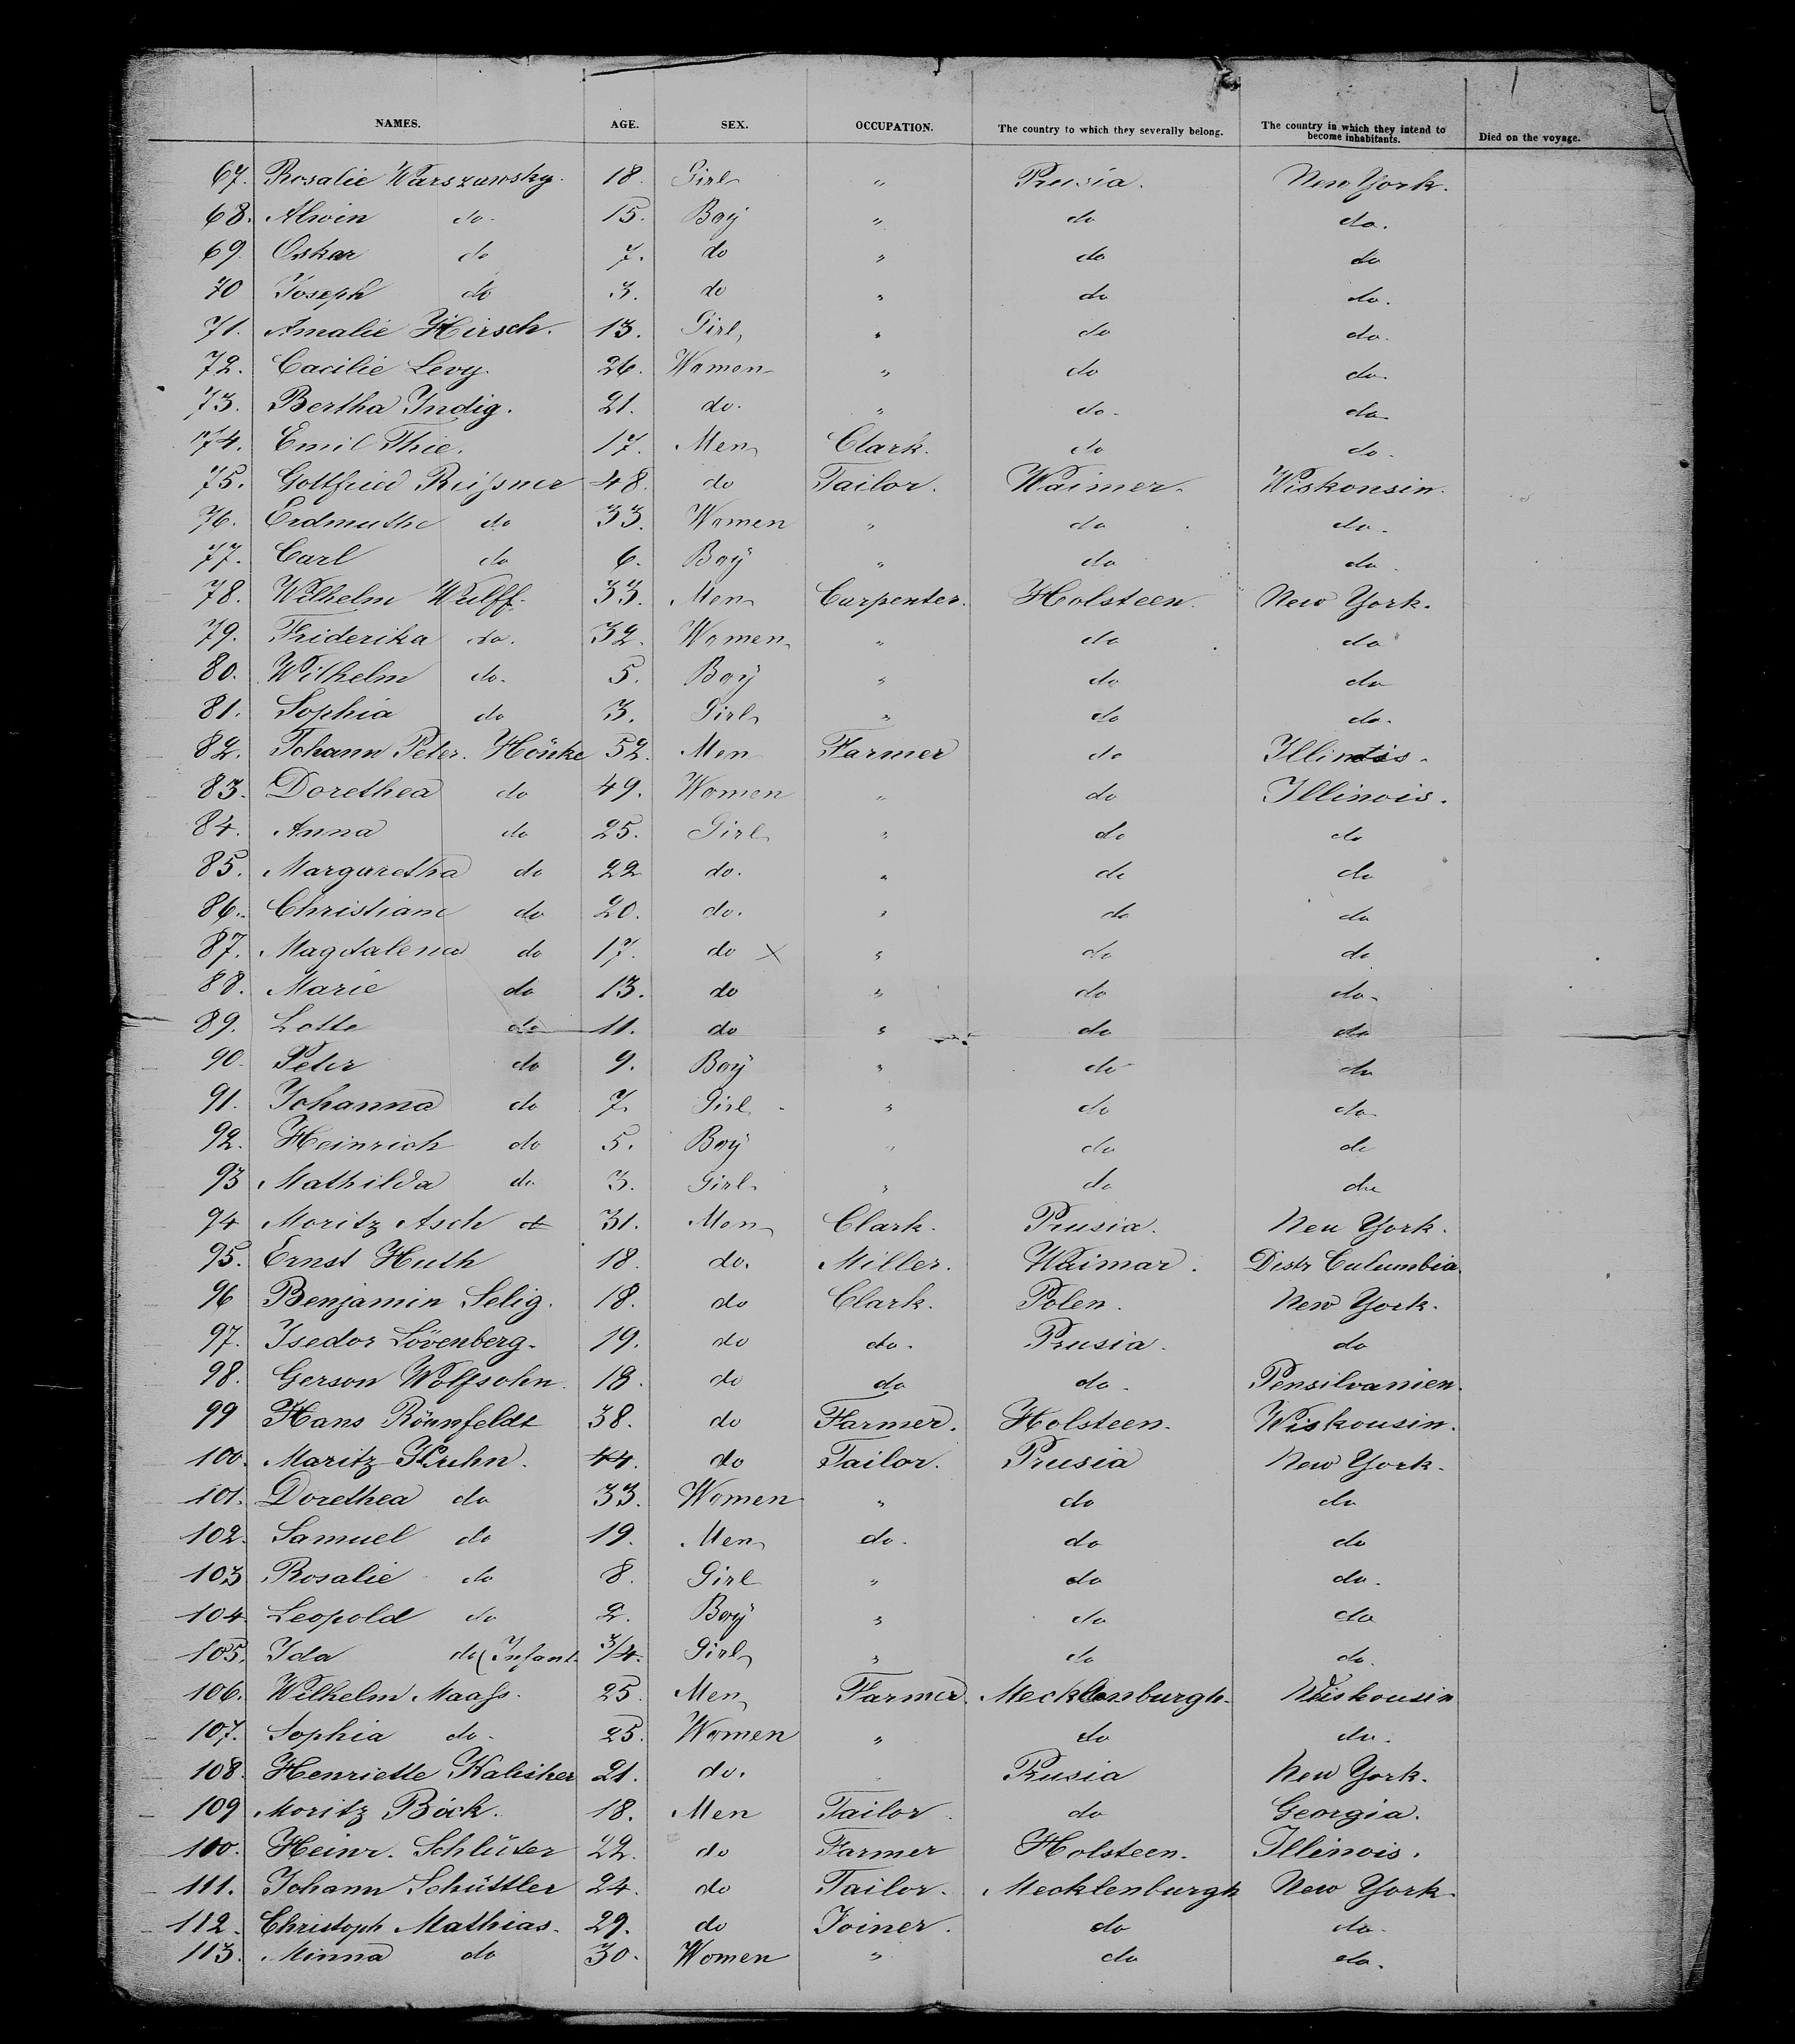 NAMES. AGE. SEX. OCCUPATION. The country to which they severally belong. The country in which they intend to become inhabitants. Died on the voyage.
67. Rosalie Warszawsky. 18. Girl " Prusia. New York.
68. Alwin do. 15. Boy " do do.
69. Oskar do 7. do " do do
70 Joseph do 3. do " do do.
71. Amalie Hirsch. 13. Girl " do do.
72. Cacilie Levy. 26. Women " do do.
73. Bertha Indig. 21. do. " do. do
74. Emil Thie. 17. Men Clark. do do.
75. Gottfried Reißner 48. do Tailor. Waimer. Wiskonsin.
76. Erdmuthe do 33. Women " do do.
77. Carl do 6. Boy " do do.
78. Wilhelm Wulff. 33. Men Carpenter. Holsteen. New York.
79. Friderika do. 32. Women " do do
80. Wilhelm do. 5. Boy " do do
81. Sophia do 3. Girl " do do.
82. Johann Peter. Hönke 52. Men Farmer do Illinois.
83. Dorethea do 49. Women " do Illinois.
84. Anna do 25. Girl " do do
85. Margaretha do 22 do. " do do
86. Christiane do 20. do. " do do
87. Magdalena do 17. do X " do do
88. Marie do 13. do " do do.
89. Lotte do 11. do " do do
90. Peter do 9. Boy " do do
91. Johanna do 7. Girl " do do.
92. Heinrich do 5. Boy " do do
93 Mathilda do 3. Girl. " do do
94 Moritz Asch 31. Men Clark. Prusia. New York.
95. Ernst Huth 18. do. Miller. Waimar. Distr Culumbia.
96 Benjamin Selig. 18. do Clark. Polen. New York.
97. Isedor Lövenberg. 19. do do. Prusia. do
98. Gerson Wolfsohn. 18. do do do. Pensilvanien.
99 Hans Rönnfeldt 38. do Farmer. Holsteen. Wiskousin.
100. Maritz Kuhn. 44. do Tailor. Prusia New York.
101. Dorethea do 33. Women " do do
102. Samuel do 19. Men do. do do
103 Rosalie do 8. Girl " do do.
104. Leopold do 2. Boy " do do
105. Ida do (Infant. 3/4. Girl " do do.
106. Wilhelm Maaß. 25. Men Farmer Mecklenburgh. Wiskousin
107. Sophia do. 25. Women " do do.
108. Henriette Kalisher 21. do. Prusia New York.
109 Moritz Böck. 18. Men Tailor. do Georgia.
110. Heinr. Schlüter 22. do Farmer Holsteen. Illinois.
111. Johann Schüttler 24. do Tailor. Mecklenburgh New York.
112. Christoph Mathias. 29. do Joiner. do do.
113. Minna do 30. Women " do do.